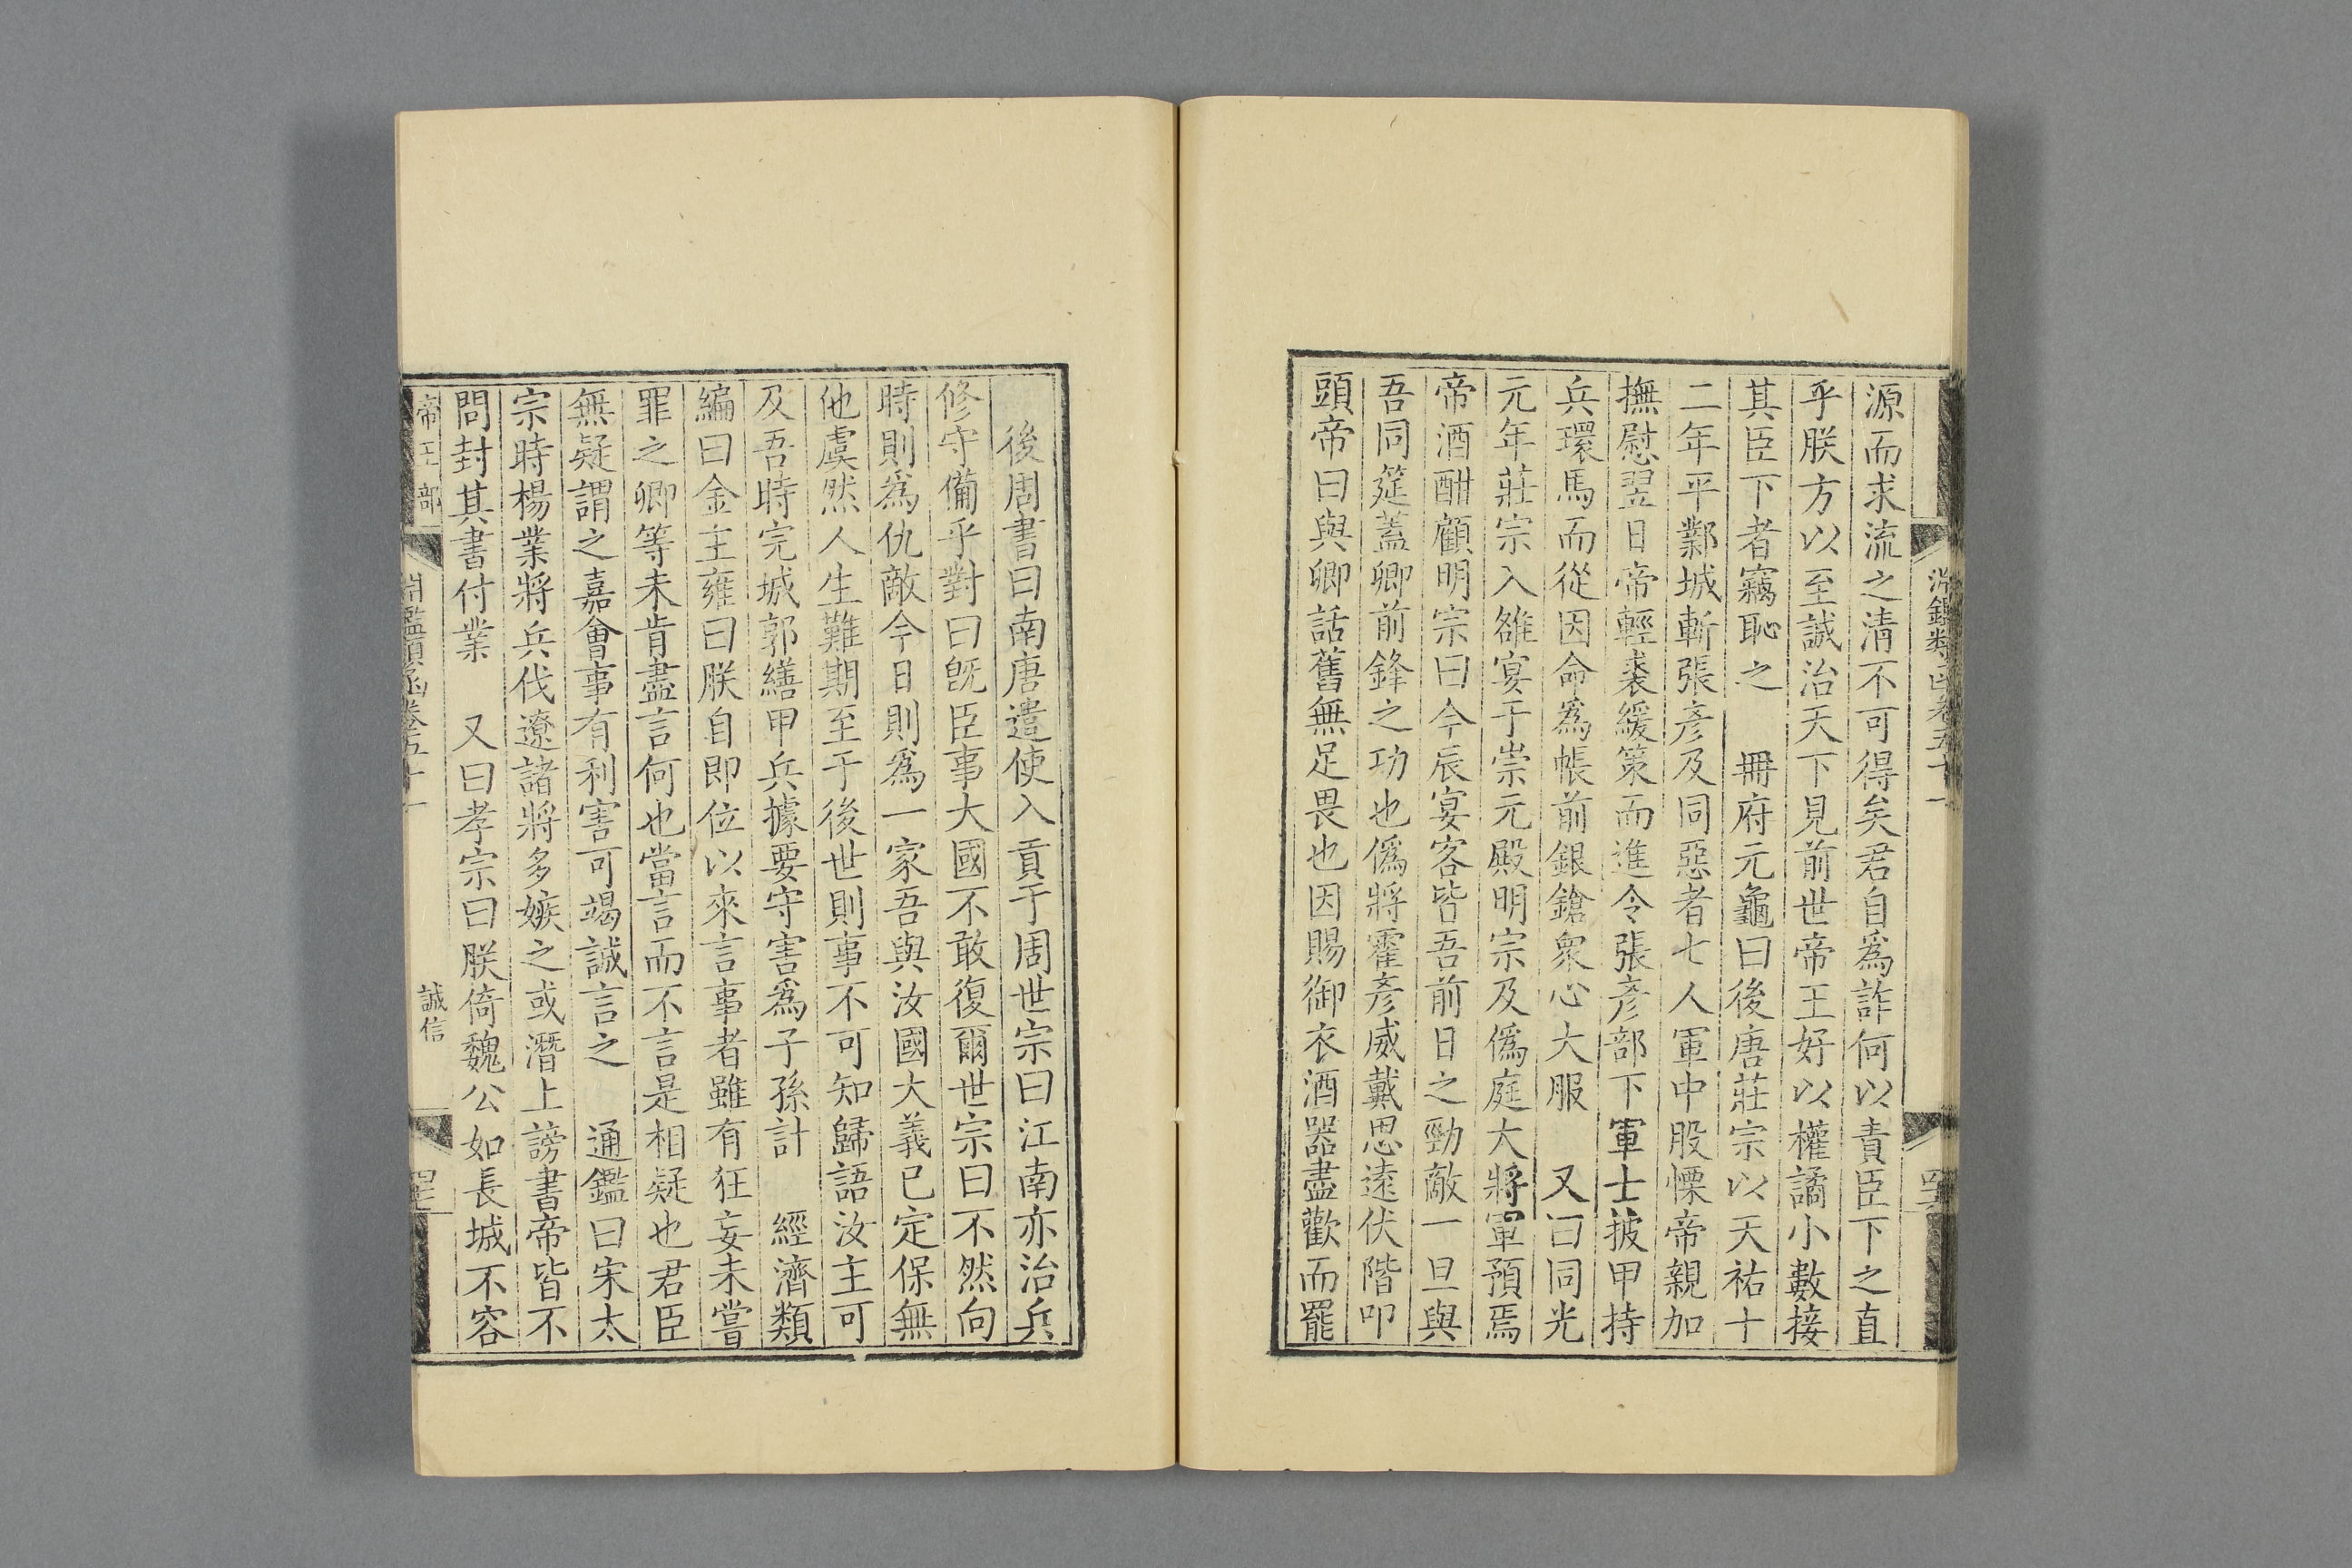 源而求流之清不可得矣君自爲詐何以責臣下之直
乎朕方以至誠治天下見前世帝王好以權譎小數接
其臣下者竊恥之 冊府元龜曰後唐莊宗以天祐十
二年平鄴城斬張彥及同惡者七人軍中股慄帝親加
撫慰翌日帝輕裘緩策而進令張彥部下軍士披甲持
兵環馬而從因命爲帳前銀鎗衆心大服 又曰同光
元年莊宗入雒宴于崇元殿明宗及僞庭大將軍預焉
帝酒酣顧明宗曰今辰宴客皆吾前日之勁敵一旦與
吾同筵蓋卿前鋒之功也僞將霍彥威戴思遠伏階叩
頭帝曰與卿話舊無足畏也因賜御衣酒器盡歡而罷
後周書曰南唐遣使入貢于周世宗曰江南亦治兵
修守備乎對曰旣臣事大國不敢復爾世宗曰不然向
時則爲仇敵今日則爲一家吾與汝國大義已定保無
他虞然人生難期至于後世則事不可知歸語汝主可
及吾時完城郭繕甲兵據要守害爲子孫計 經濟類
編曰金主雍曰朕自即位以來言事者雖有狂妄未嘗
罪之卿等未肯盡言何也當言而不言是相疑也君臣
無疑謂之嘉會事有利害可竭誠言之 通鑑曰宋太
宗時楊業將兵伐遼諸將多嫉之或潛上謗書帝皆不
問封其書付業 又曰孝宗曰朕倚魏公如長城不容
帝王部 淵鑑類函卷五十一 誠信